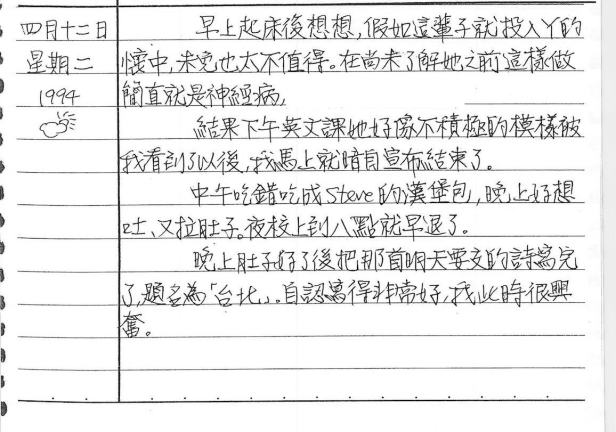 四月十二日
星期二
1994
早上起床後想想,假如這輩子就投入丫的
懷中,未免也太不值得。在尚未了解她之前這樣做
簡直就是神經病,
結果下午英文課她好像不積極的模樣被
我看到了以後,我馬上就暗自宣布結束了。
中午吃錯吃成Steve的漢堡包,晚上好想
吐、又拉肚子。夜校上到八點就早退了。
晚上肚子好了後把那首明天要交的詩寫完
了,題名為「台北」。自認寫得非常好,我此時很興
奮。